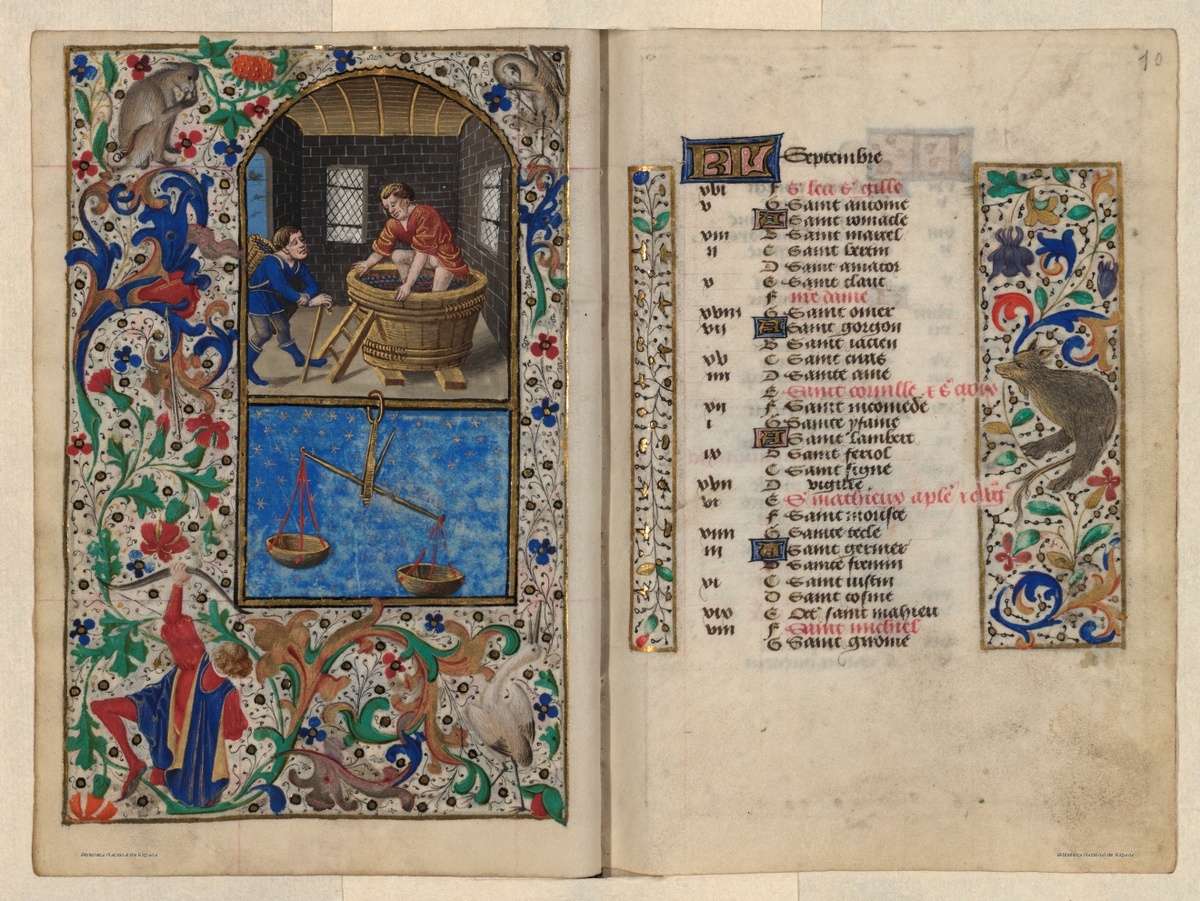 10
KL Septembre
xvi F S. leu s. gille
v G Saint antoine
A Saint
xiii B Saint marcel
ii C Saint bertin
D Saint amator
x E Saint claut
F nre dame
xviii G Saint omer
vii A Saint gorgon
B Saint
xv C Saint
iiii D Sainte ame
E Saint cornille & s croix
xii F Saint nicomede
i G Sainte
A Saint lambert
ix B Saint feriol
C Saint signe
xvii D vigille
vi E S. matheus aple & evvg
F Saint morisce
xiiii G Sainte tecle
iii A Saint germer
B Saint firmin
xi C Saint iustin
D Saint cosme
xix E Oct saint mahieu
viii F Saint michiel
G Saint
Biblioteca Nacional de España
Biblioteca Nacional de España